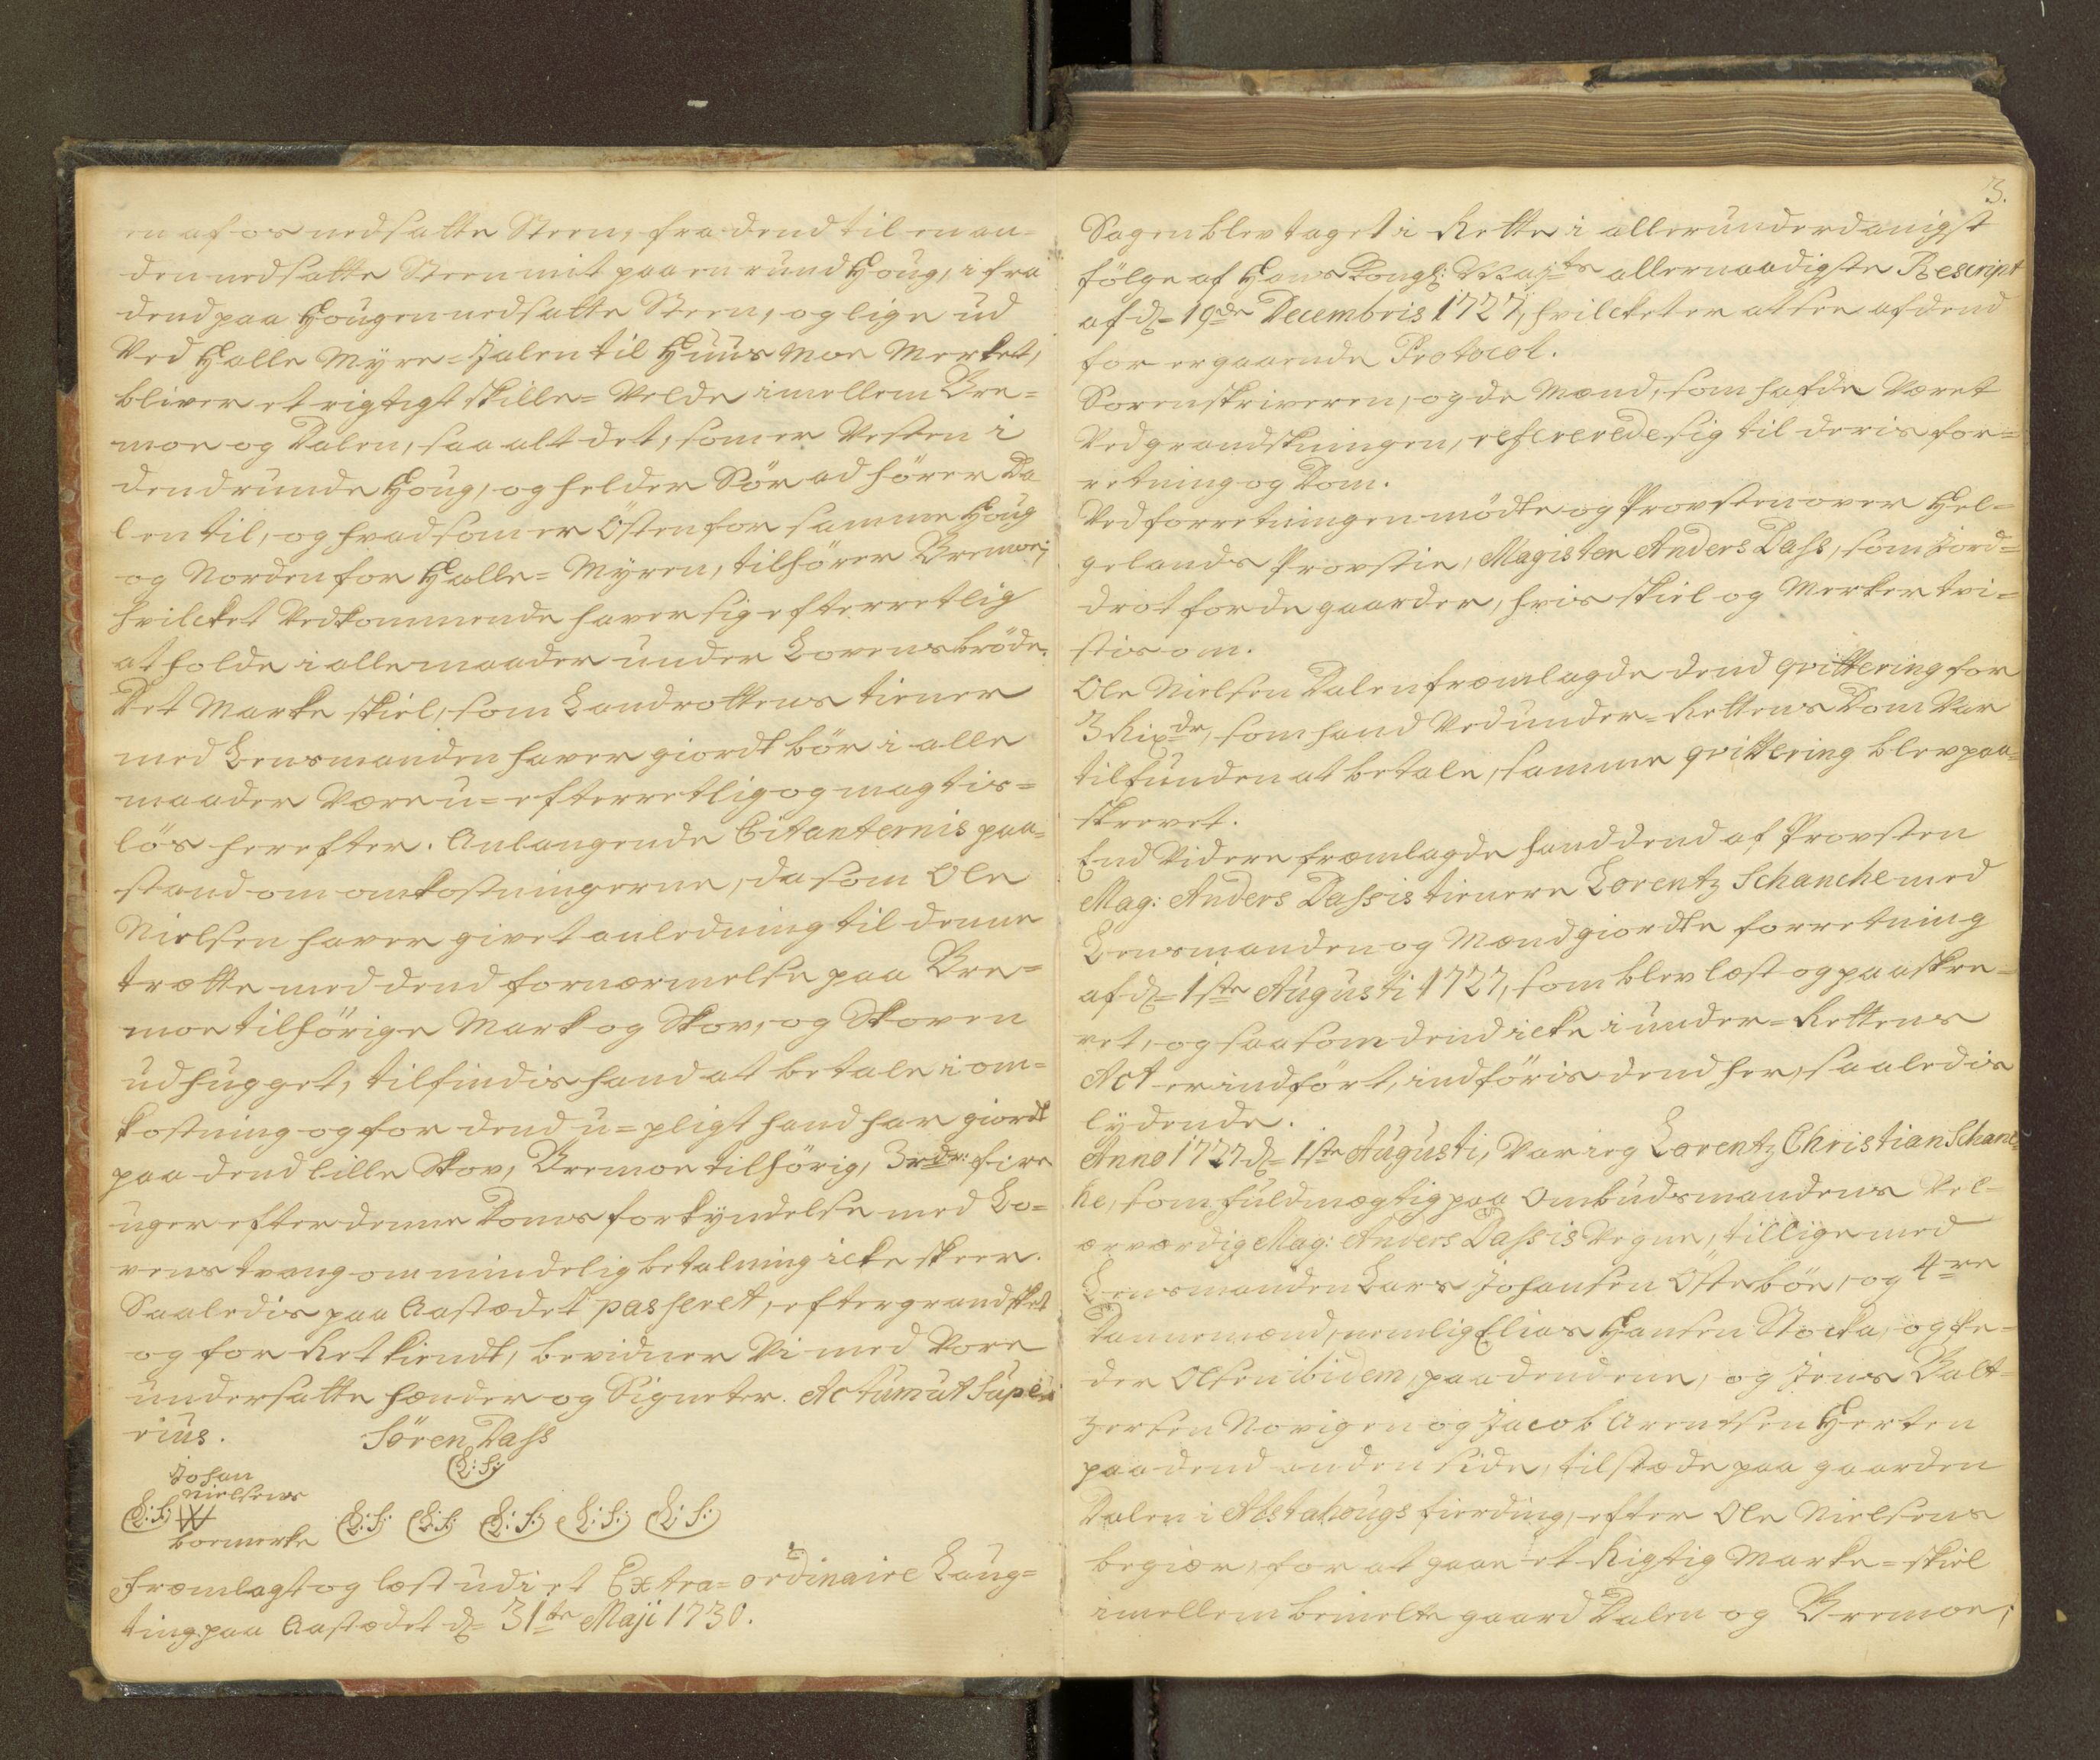 en af os nedsatte Steen, fra dend til en an=
den nedsatte Steen mit paa en rund Houg, i fra
dend paa Hougen nedsatte Steen, og lige ud
Ved Halle Myre=Jalen til Huus Moe Merket,
bliver et rigtigt skille=Velde imellem Bre=
moe og Dalen, saa alt det, som er Vesten i
dend runde Houg, og helder Sör ad hörer Da
len til, og hvad som er Östen for samme Houg
og Norden for Halle=Myren, tilhörer Bremoe,
hvilcket Vedkommende haver sig efterretlig
at holde i alle maader under Lovens bröde.
Det Marke skiel, som Landrottens tiener
med Lensmanden haver giordt bör i alle
maader Være u=efterretlig og magtis=
lös herefter. Anlangende Citanternis paa=
stand om omkostningerne, da som Ole
Nielsen haver givet anledning til denne
trætte med dend fornærmelse paa Bre=
moe tilhörige Mark og Skov, og Skoven
udhugget, tilfindis hand at betale i om=
kostning og for dend u=pligt hand har giordt
paa dend lille Skov, Bremoe tilhörig, 3 rdr: fire
uger efter denne Doms forkyndelse med Lo=
vens tvang om mindelig betalning icke skeer.
Saaledis paa Aastædet passeret, eftergrandsket
og for Ret kiendt, bevidner Vi med Vore
undersatte hænder og Signeter. Actum ut Supe
rius. Sören Dass
(L: S:)
Johan
Nielsens
(L: S:) (L: S:) (L: S:) (L: S:) (L: S:) (L: S:)
boemerke
Fremlagt og læst udi et Extra=ordinaire Laug=
ting paa Aastædet d= 31te Maji 1730.
3.
Sagen blev taget i Rette i allerunderdanigst
fölge af Hans Kongl: Mayts allernaadigste Rescript
af d= 19de Decembris 1727, hvilcket er at see af dend
for ergaaende Protocol.
Sorenskriveren, og de Mænd, som hafde Været
Ved grandskningen, refererede sig til deris for=
retning og Dom.
Ved forretningen mödte og Provsten over Hel=
gelands Provstie, Magister Anders Dass, som Jord=
drot for de gaarder, hvis skiel og Merker tvi=
stis om.
Ole Nielsen Dalen fremlagde dend qvittering for
3 Rixdr, som hand Ved under=Rettens Dom Var
tilfunden at betale, samme qvittering blev paa=
skrevet.
End Videre fremlagde hand dend af Provsten
Mag: Anders Dassis tienere Lorentz Schanche med
Lensmanden og Mænd giordte forretning
af d= 1ste Augusti 1727, som blev læst og paaskre=
vet, og saasom dend icke i under=Rettens
Act er indfört, indföris dend her, saaledis
lydende.
Anno 1727 d= 1ste Augusti, Var ieg Lorentz Christian Schanc=
he, som fuldmægtig paa Ombudsmandens Vel=
ærværdig Mag: Anders Dassis Vegne, tillige med
Lensmanden Lars Johansen Östeböe, og 4re
Dannemænd, nemlig Elias Hansen Stocka, og Pe=
der Olsen ibidem, paa dend ene, og Jens Balt=
zersen Norigen og Jacob Arentsen Herten
paa dend anden side, tilstæde paa gaarden
Dalen i Alstahougs fierding, efter Ole Nielsens
begiær, for at gaae et Rigtig Marke=skiel
imellem bemelte gaard Dalen og Bremoe;